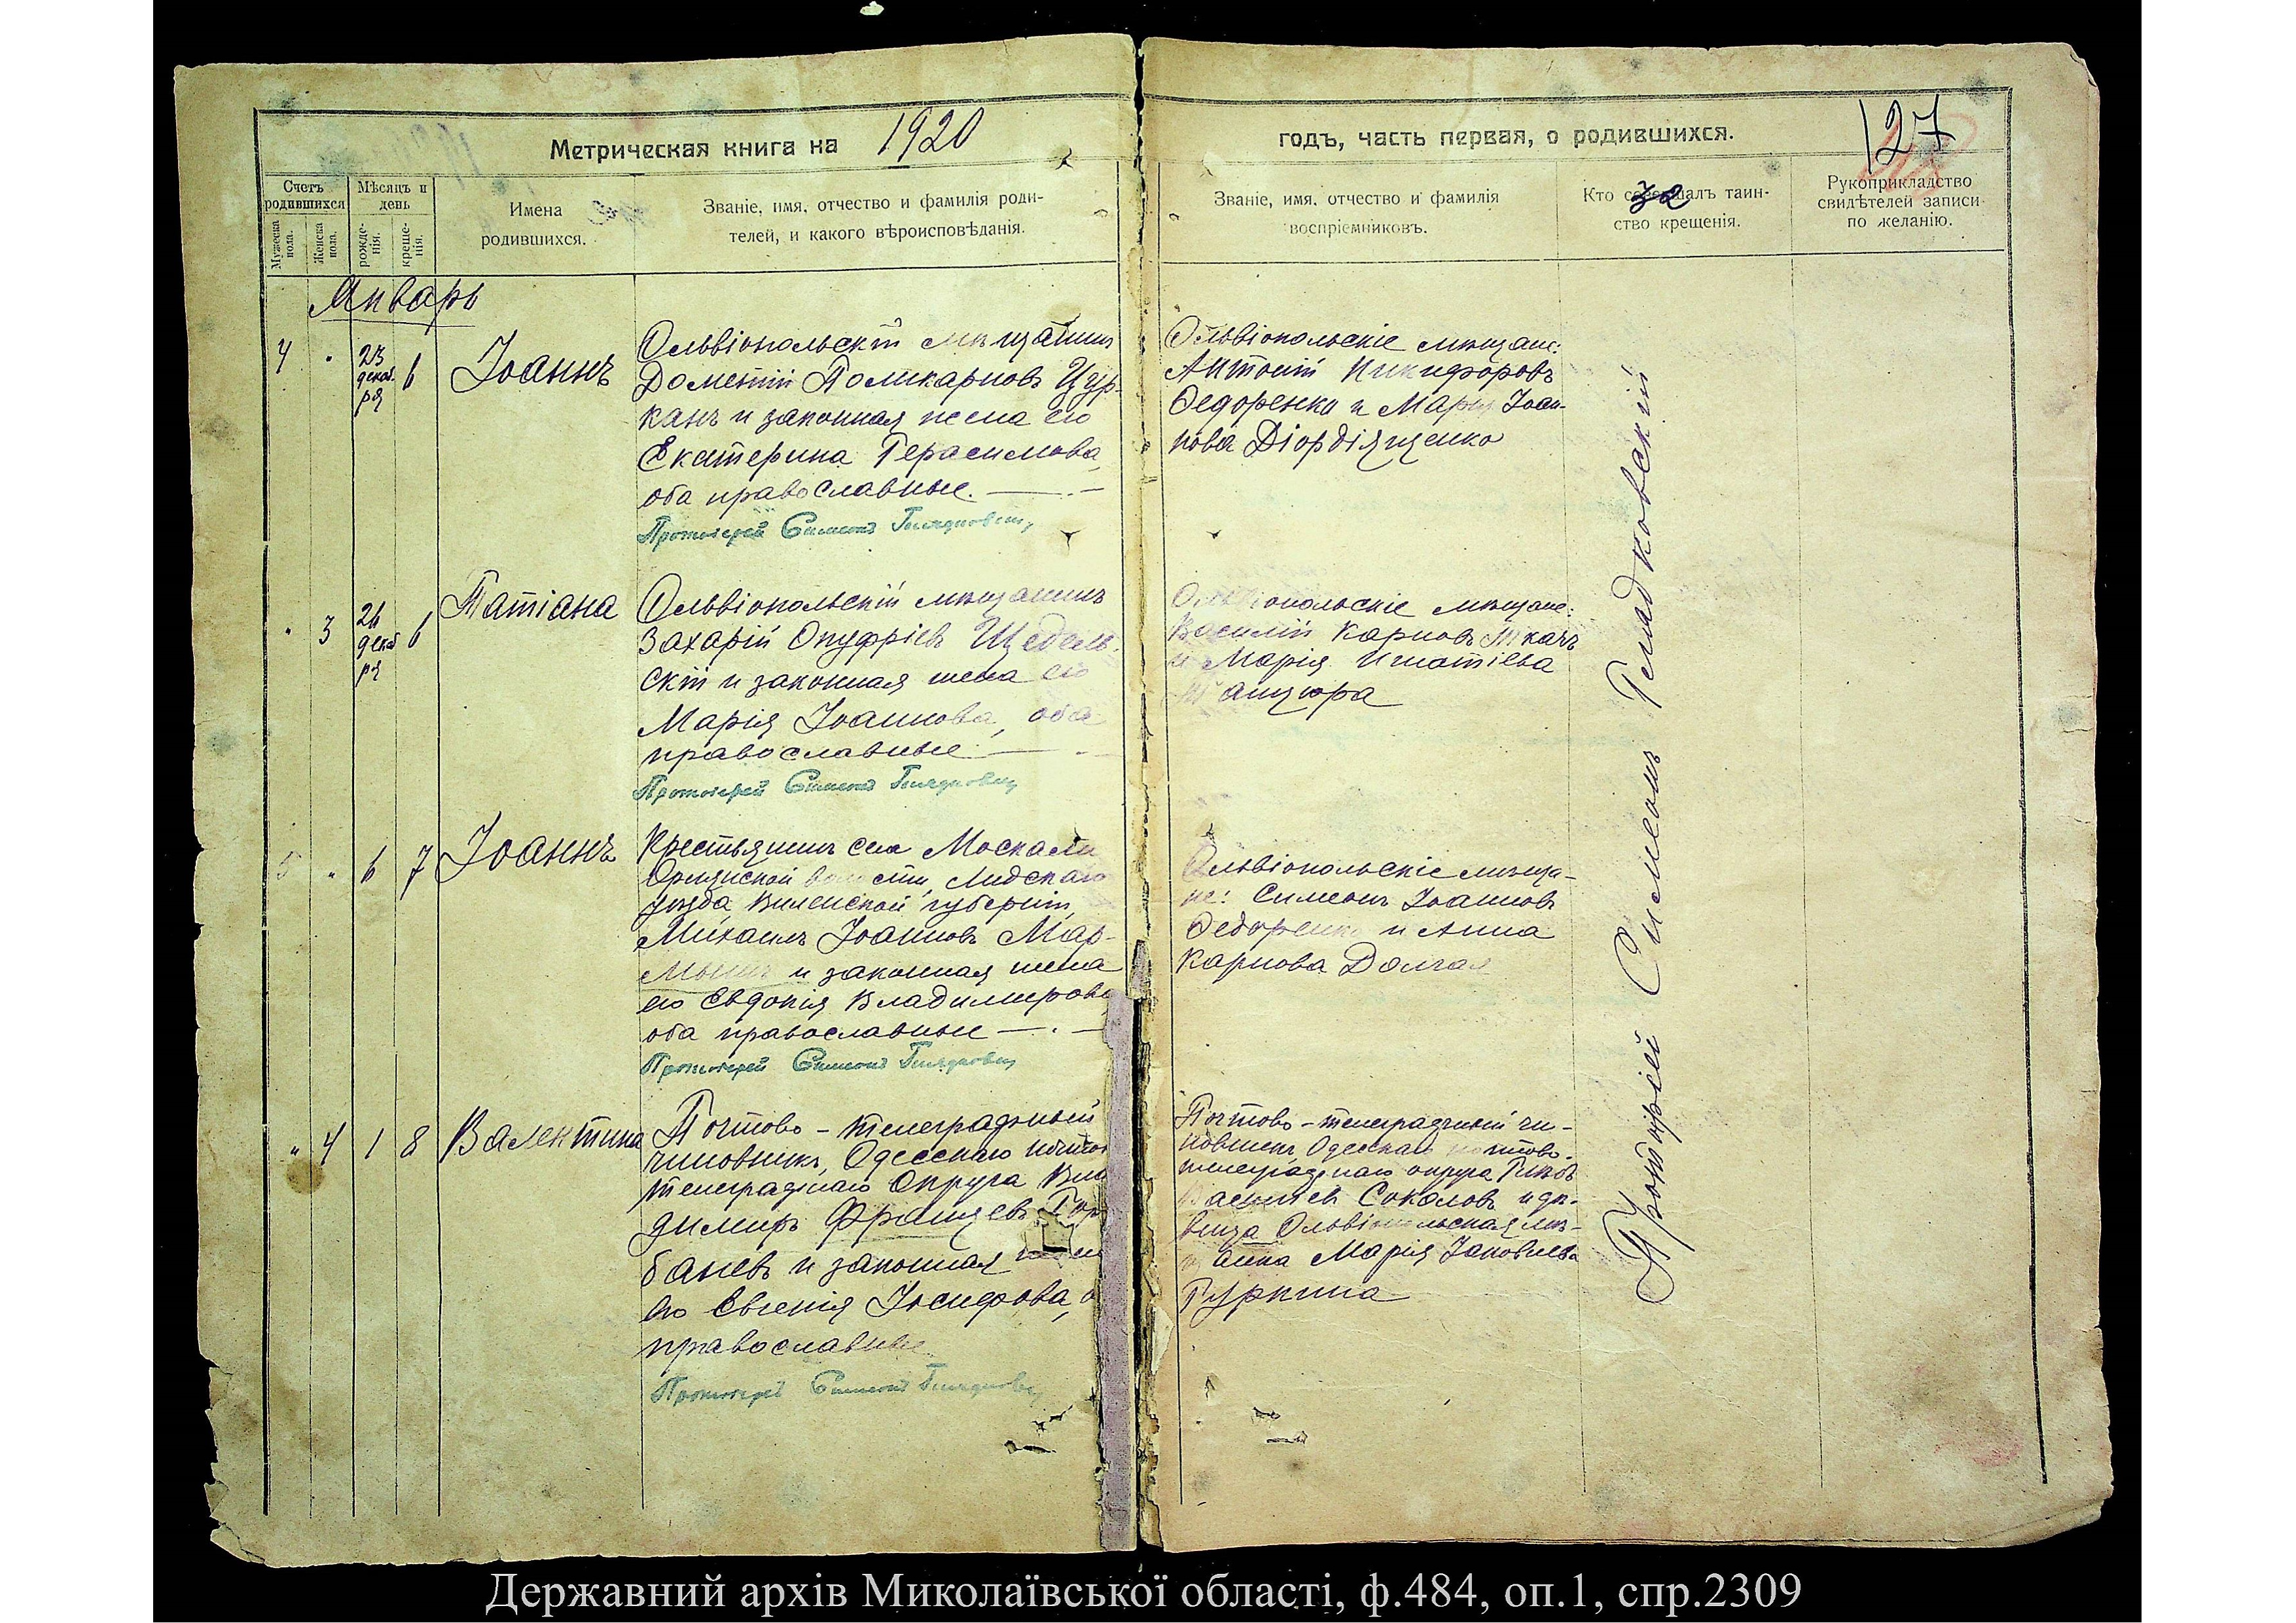 Метрическая книга на 1920
годъ, часть первая, о родившихся.
127
Счетъ родившихся
Мѣсяцъ и день
Мужеска пола.
Женска пола.
рожде-нія.
креще-нія.
Имена
родившихся.
Званіе, имя, отчество и фамилія роди-
телей, и какого вѣроисповѣданія.
Званіе, имя, отчество и фамилія
воспріемниковъ.
32
Кто совершалъ таин-
ство крещенія.
Рукоприкладство
свидѣтелей записи
по желанію.
Январь
4 " 23 декаб-ря 6 Іоаннъ
Ольвіопольскій мѣщанинъ
Дометій Поликарповъ Цур-
канъ и законная жена его
Екатерина Герасимова,
оба православные.
Протоіерей Симеонъ Гладковскій
Ольвіопольскіе мѣщане:
Антоній Никифоровъ
Ѳедоренко и Марія Іоан-
нова Діордіященко
" 3 26 декаб ря 6 Татіана
Ольвіопольскій мѣщанинъ
Захарій Онуфріевъ Щедель-
скій и законная жена его
Марія Іоаннова, оба
православные.
Протоіерей Симеонъ Гладковскій
Ольвіопольскіе мѣщане:
Василій Карповъ Ткачъ
и Марія Игнатіева
5 " 6 7 Іоаннъ
Крестьянинъ села Москали
волости, Лидскаго
уѣзда, Виленской губерніи,
Михаилъ Іоанновъ Мар-
и законная жена
его Евдокія Владимирова
оба православные
Протоіерей Симеонъ Гладковскій
Ольвіопольскіе мѣща-
не: Симеонъ Іоанновъ
Ѳедоренко и Анна
Карпова Долгая
" 4 1 8 Валентина
Почтово-телеграфный
чиновникъ, Одесскаго почтов
телеграфнаго Округа Вла
димиръ Францевъ Гор
баневъ и законная жен
его Евгенія Іосифова, о
православные
Протоіерей Симеонъ Гладковскій
Почтово-телеграфный чи-
новникъ, Одесскаго почтово-
телеграфнаго округа Глѣбъ
Васильевъ Соколовъ и дѣ-
вица Ольвіопольская мѣ-
щанка Марія Іаковлева
Гуркина
Протоіерей Симеонъ Гладковскій
Державний архів Миколаївської області, ф.484, оп.1, спр.2309